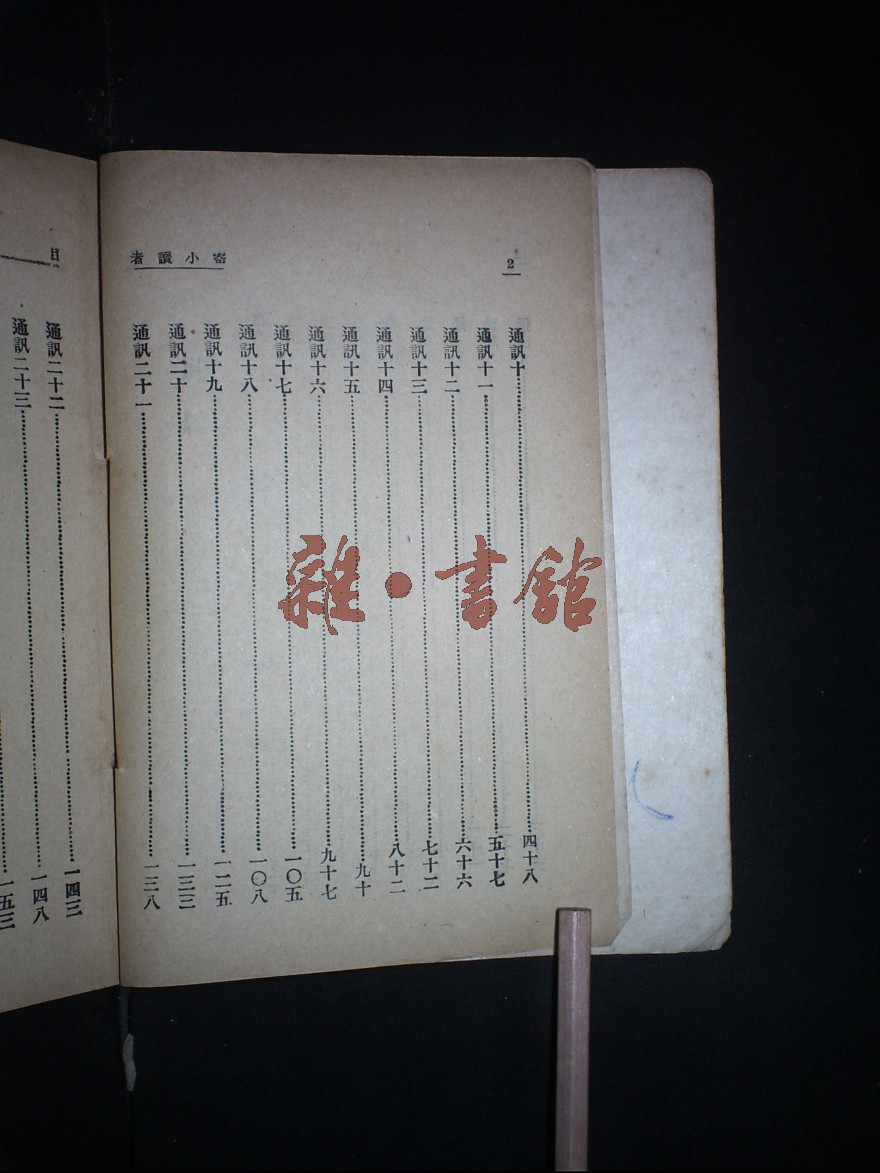 寄小讀者
2
通訊十……四十八
通訊十一……五十七
通訊十二……六十六
通訊十三……七十二
通訊十四……八十二
通訊十五……九十
通訊十六……九十七
通訊十七……一〇五
通訊十八……一〇八
通訊十九……一二五
通訊二十……一三三
通訊二十一……一三八
目
通訊二十二……一四三
通訊二十三……一四八
一五三
雜·書館